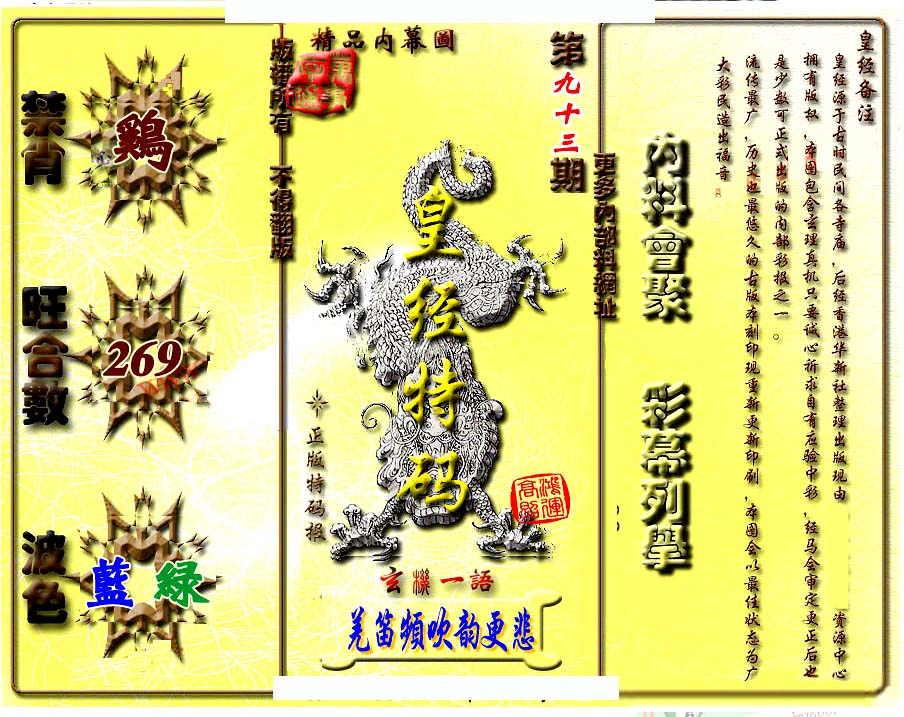 精品内幕圖
版權所有 不得翻版
禁肖
鷄
旺合數
269
波色
藍 綠
第九十三期
皇经特码
正版特码报
鴻運高照
玄機一語
羌笛頻吹韵更悲
更多內部料網址
內料會聚 彩幕列舉
皇经备注
皇经源于古时民间各寺庙，后经香港华新社整理出版现由 资源中心
拥有版权，本图包含玄理真机只要诚心祈求自有应验中彩，经马会审定更正后也
是少数可正式出版的内部彩报之一。
流传最广，历史也最悠久的古版本刻印现重新更新印刷，本图会以最佳状态为广
大彩民造出福音